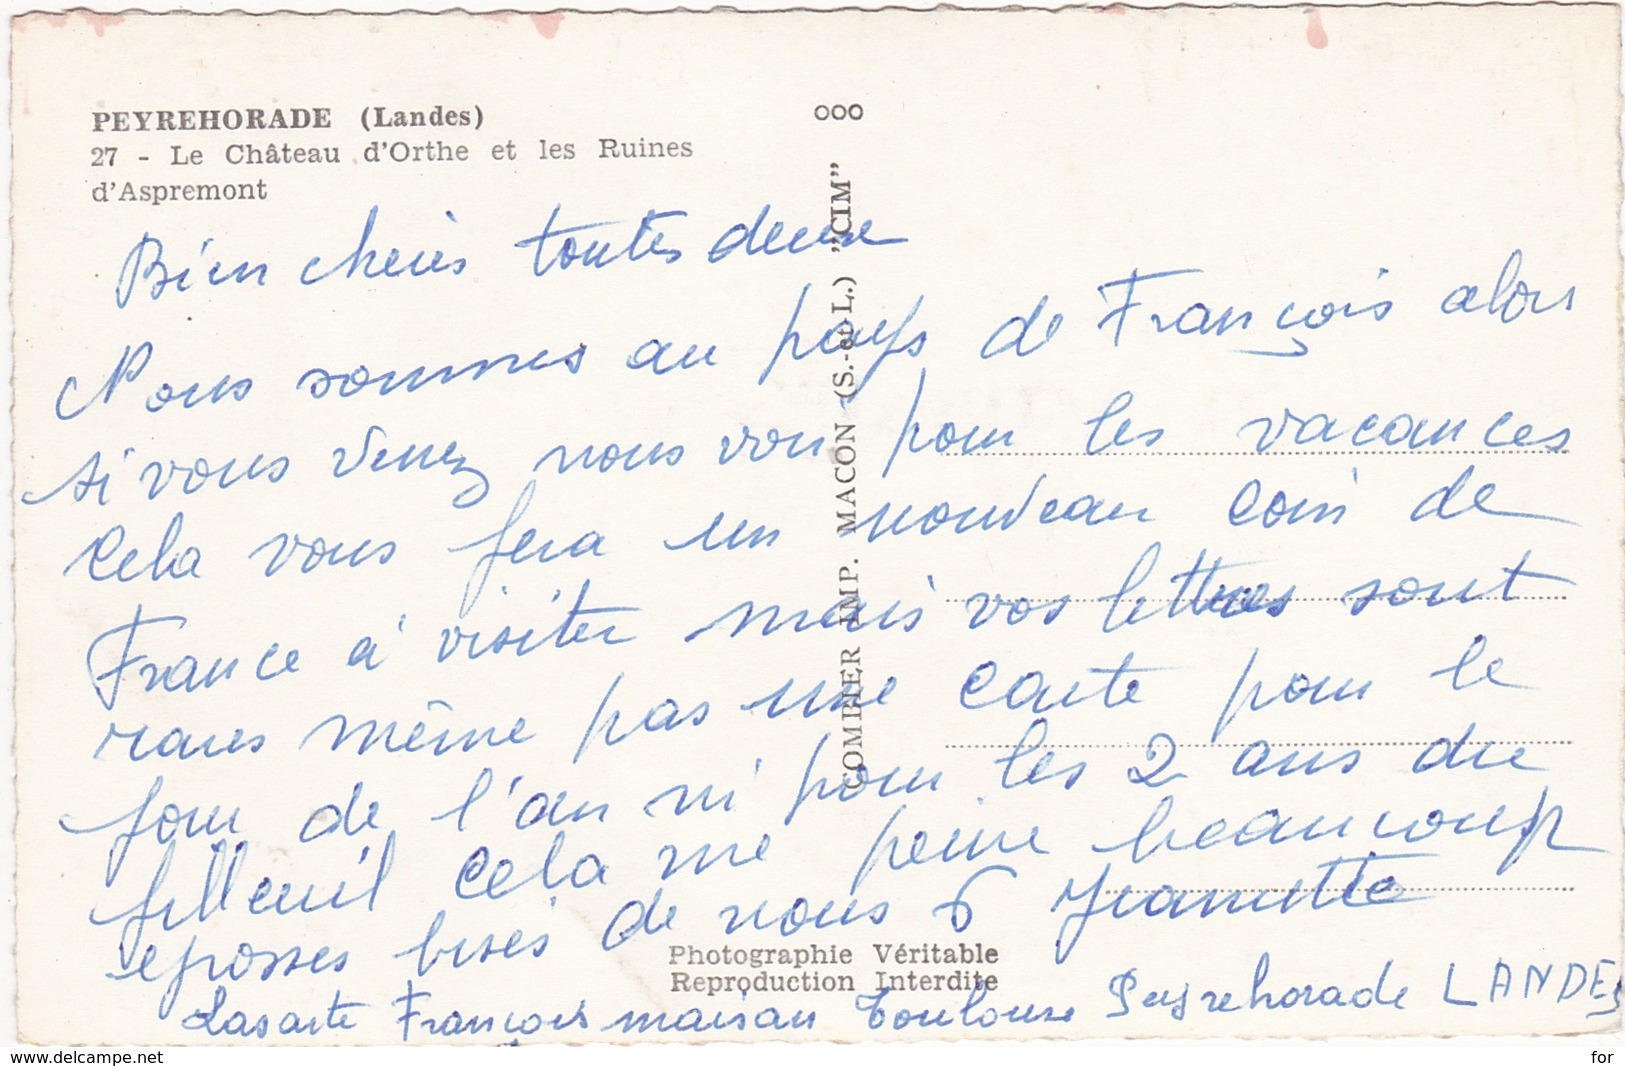 PEYREHORADE (Landes)
27 - Le Château d'Orthe et les Ruines
d'Aspremont
ooo
COMBIER IMP. MACON (S.-et-L.) "CIM"
Bien cheries toutes deux
Nous sommes au pays de François alors
si vous venez nous voir pour les vacances
cela vous fera un nouveau coin de
France à visiter mais vos lettres sont
rares même pas une carte pour le
jour de l'an ni pour les 2 ans du
filleuil cela me peine beaucoup
grosses bises de nous 6 Jeannette
Photographie Véritable
Reproduction Interdite
Lasarte François maison Toulouse Peyrehorade LANDES
www.delcampe.net
for